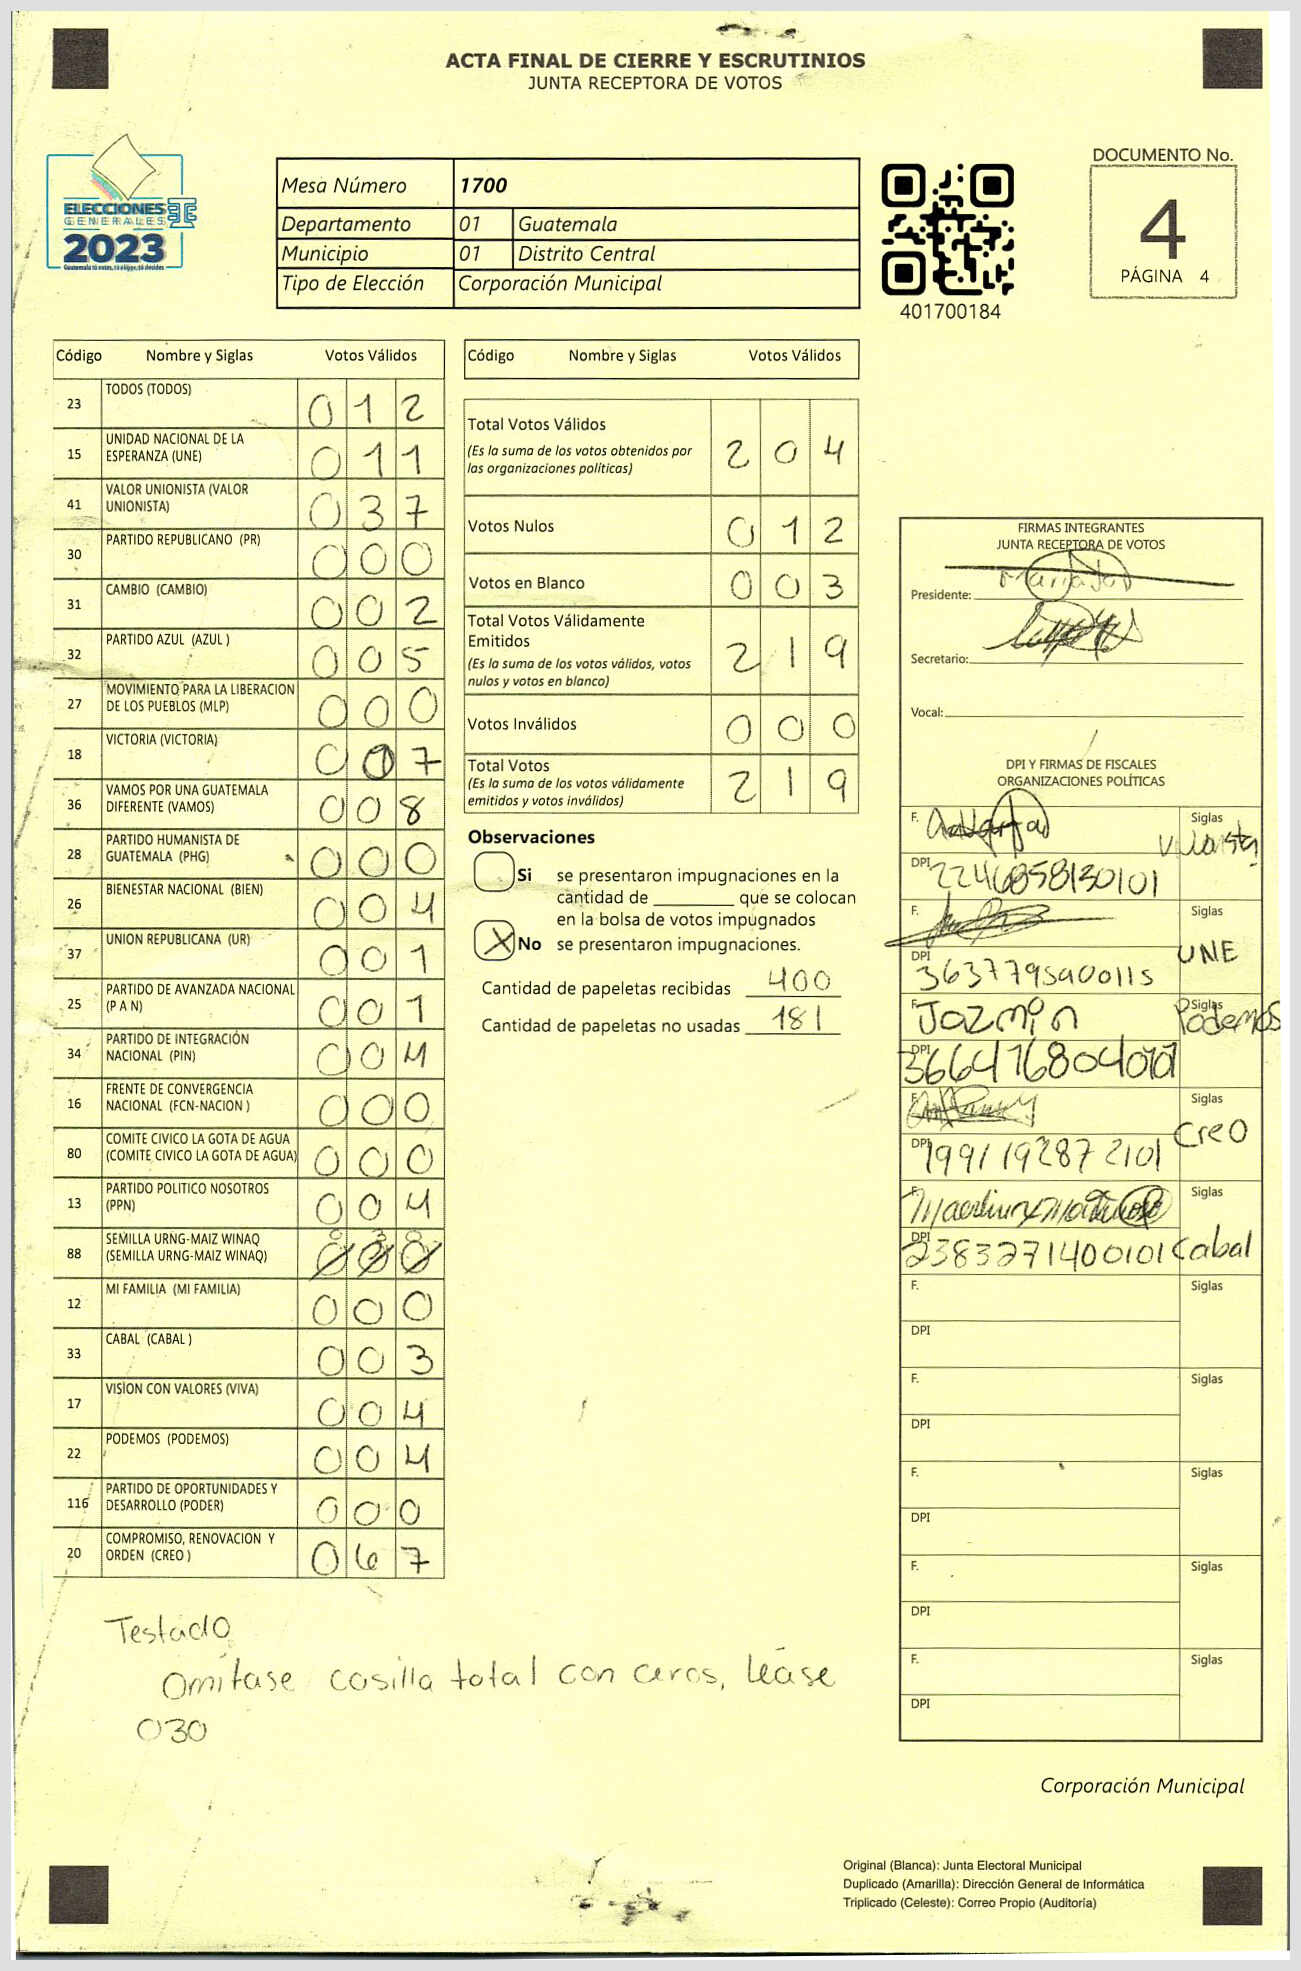 ACTA FINAL DE CIERRE Y ESCRUTINIOS
JUNTA RECEPTORA DE VOTOS
ELECCIONES
GENERALES
2023
Guatemala tú votas, tú eliges, tú decides
Mesa Número 1700
Departamento 01 Guatemala
Municipio 01 Distrito Central
Tipo de Elección Corporación Municipal
401700184
DOCUMENTO No.
4
PÁGINA 4
Código Nombre y Siglas Votos Válidos
23 TODOS (TODOS) 0 1 2
15 UNIDAD NACIONAL DE LA ESPERANZA (UNE) 0 1 1
41 VALOR UNIONISTA (VALOR UNIONISTA) 0 3 7
30 PARTIDO REPUBLICANO (PR) 0 0 0
31 CAMBIO (CAMBIO) 0 0 2
32 PARTIDO AZUL (AZUL ) 0 0 5
27 MOVIMIENTO PARA LA LIBERACION DE LOS PUEBLOS (MLP) 0 0 0
18 VICTORIA (VICTORIA) 0 0 7
36 VAMOS POR UNA GUATEMALA DIFERENTE (VAMOS) 0 0 8
28 PARTIDO HUMANISTA DE GUATEMALA (PHG) 0 0 0
26 BIENESTAR NACIONAL (BIEN) 0 0 4
37 UNION REPUBLICANA (UR) 0 0 1
25 PARTIDO DE AVANZADA NACIONAL (P A N) 0 0 1
34 PARTIDO DE INTEGRACIÓN NACIONAL (PIN) 0 0 4
16 FRENTE DE CONVERGENCIA NACIONAL (FCN-NACION ) 0 0 0
80 COMITE CIVICO LA GOTA DE AGUA (COMITE CIVICO LA GOTA DE AGUA) 0 0 0
13 PARTIDO POLITICO NOSOTROS (PPN) 0 0 4
88 SEMILLA URNG-MAIZ WINAQ (SEMILLA URNG-MAIZ WINAQ) 0 3 0
12 MI FAMILIA (MI FAMILIA) 0 0 0
33 CABAL (CABAL ) 0 0 3
17 VISION CON VALORES (VIVA) 0 0 4
22 PODEMOS (PODEMOS) 0 0 4
116 PARTIDO DE OPORTUNIDADES Y DESARROLLO (PODER) 0 0 0
20 COMPROMISO, RENOVACION Y ORDEN (CREO ) 0 6 7
Testado
Omítase casilla total con ceros, léase
030
Código Nombre y Siglas Votos Válidos
Total Votos Válidos 2 0 4
(Es la suma de los votos obtenidos por las organizaciones políticas)
Votos Nulos 0 1 2
Votos en Blanco 0 0 3
Total Votos Válidamente Emitidos 2 1 9
(Es la suma de los votos válidos, votos nulos y votos en blanco)
Votos Inválidos 0 0 0
Total Votos 2 1 9
(Es la suma de los votos válidamente emitidos y votos inválidos)
Observaciones
Si se presentaron impugnaciones en la
cantidad de ________ que se colocan
en la bolsa de votos impugnados
X No se presentaron impugnaciones.
Cantidad de papeletas recibidas 400
Cantidad de papeletas no usadas 181
FIRMAS INTEGRANTES
JUNTA RECEPTORA DE VOTOS
Presidente:
Secretario:
Vocal:
DPI Y FIRMAS DE FISCALES
ORGANIZACIONES POLÍTICAS
F. Siglas
DPI 2246858130101
F. Siglas UNE
DPI 3637795900115
F. Jazmin Siglas Podemos
DPI
F. Siglas Creo
DPI 1991192872101
F. Siglas Cabal
DPI 2383271400101
F. Siglas
DPI
F. Siglas
DPI
F. Siglas
DPI
F. Siglas
DPI
F. Siglas
DPI
Corporación Municipal
Original (Blanca): Junta Electoral Municipal
Duplicado (Amarilla): Dirección General de Informática
Triplicado (Celeste): Correo Propio (Auditoría)